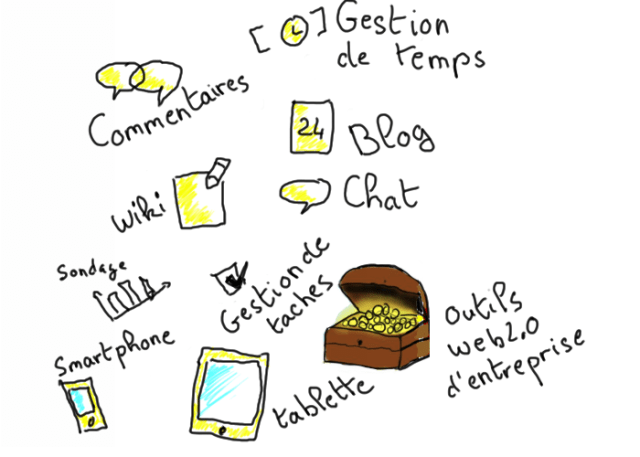 [ ] Gestion
de temps
Commentaires
24
Blog
Wiki
Chat
Sondage
Gestion de
taches
Smartphone
tablette
outils
web2.0
d'entreprise